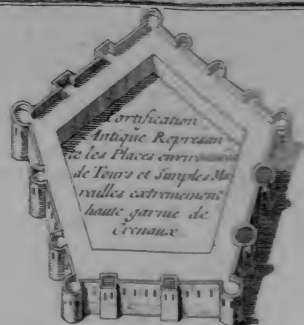 Fortification
Antique Represan
te les Places environnées
de Tours et Simples Mu
railles extremement
haute garnie de
Crenaux